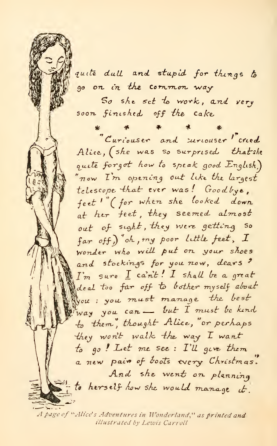 quite dull and stupid for things to
go on in the common way
So she set to work, and very
soon finished off the cake
* * * * *
"Curiouser and curiouser!" cried
Alice, (she was so surprised that she
quite forgot how to speak good English)
"now I'm opening out like the largest
telescope that ever was! Goodbye,
feet!" (for when she looked down
at her feet, they seemed almost
out of sight, they were getting so
far off) "oh, my poor little feet, I
wonder who will put on your shoes
and stockings for you now, dears?
I'm sure I can't! I shall be a great
deal too far off to bother myself about
you: you must manage the best
way you can — but I must be kind
to them," thought Alice, "or perhaps
they won't walk the way I want
to go! Let me see: I'll give them
a new pair of boots every Christmas."
And she went on planning
to herself how she would manage it.
A page of "Alice's Adventures in Wonderland," as printed and
illustrated by Lewis Carroll